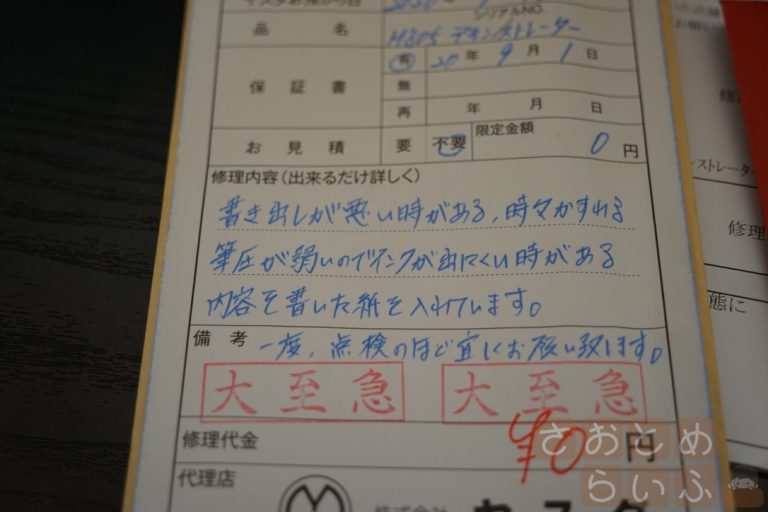 シリアルNO
品 名 M805 デモンストレーター
有 20年 9月 1日
保証書 無
再 年 月 日
お見積 要 不要 限定金額 0 円
修理内容(出来るだけ詳しく)
書き出しが悪い時がある、時々かすれる
筆圧が弱いのでインクが出にくい時がある
内容を書いた紙を入れています。
備考 一度、点検のほど宜しくお願い致します。
大至急 大至急
修理代金 ¥0 円
代理店
株式会社
ストレーター
修理
態に
さおとめ
らいふ